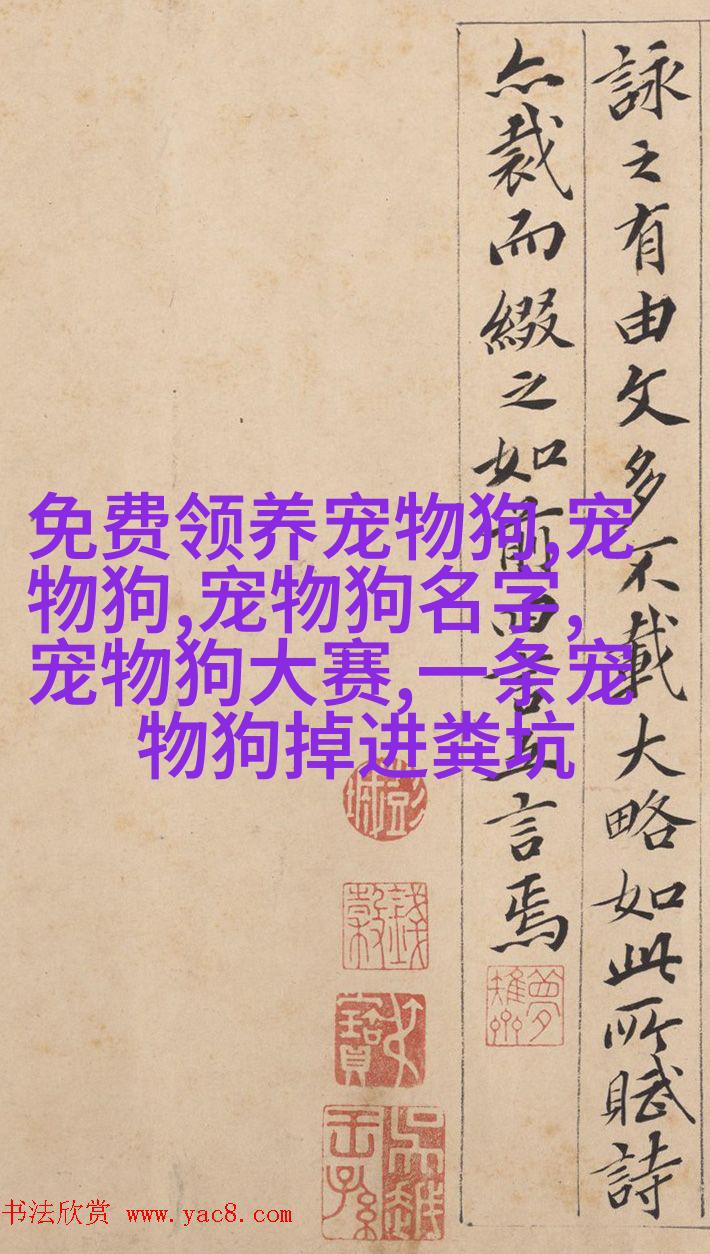 詠之有由文多不載大略如此所賦詩
亦裁而綴之如前四言五言焉
免费领养宠物狗,宠
物狗,宠物狗名字,
宠物狗大赛,一条宠
物狗掉进粪坑
书法欣赏 www.yac8.com